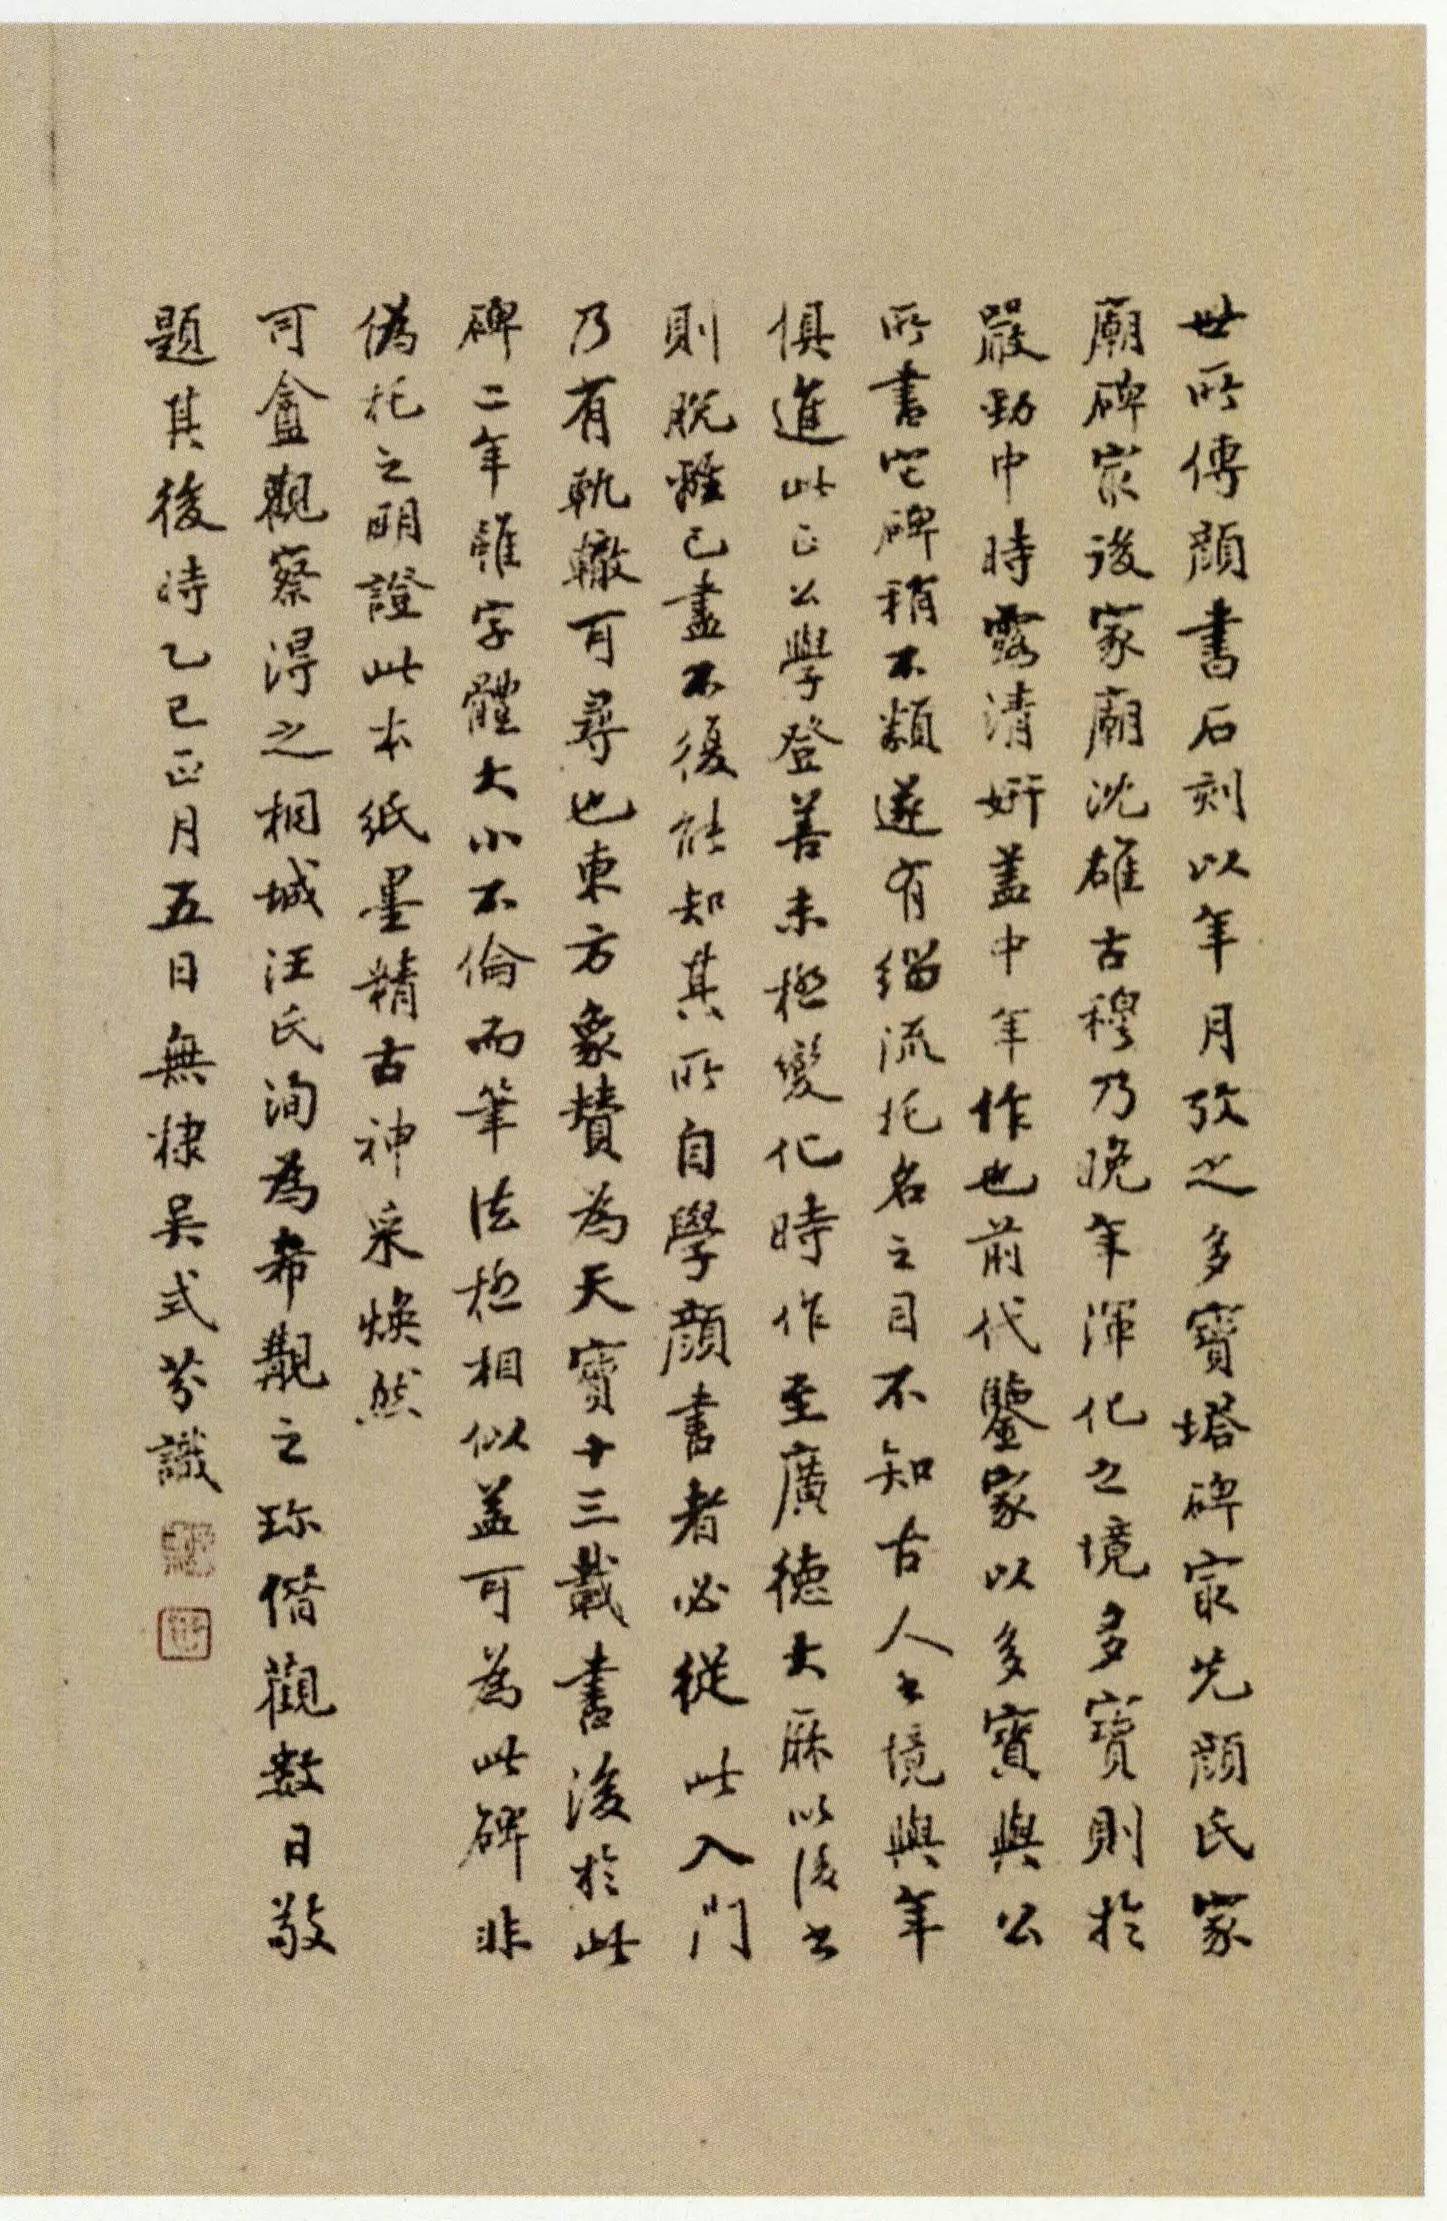 世所傳顏書石刻以年月攷之多寶塔碑冣先顏氏家
廟碑冣後家廟沈雄古穆乃晚年渾化之境多寶則於
嚴勁中時露清妍蓋中年作也前代鑒家以多寶與公
所書它碑稍不類遂有緇流托名之目不知古人書境與年
俱進此正公學登善未極變化時作至廣德大厤以後書
則脫離已盡不復能知其所自學顏書者必從此入門
乃有軌轍可尋也東方象贊為天寶十三載書後於此
碑二年雖字體大小不倫而筆法極相似蓋可為此碑非
偽托之明證此本紙墨精古神采煥然
可盦觀察淂之桐城汪氏洵為希覯之珎借觀數日敬
題其後時乙巳正月五日無棣吳式芬識